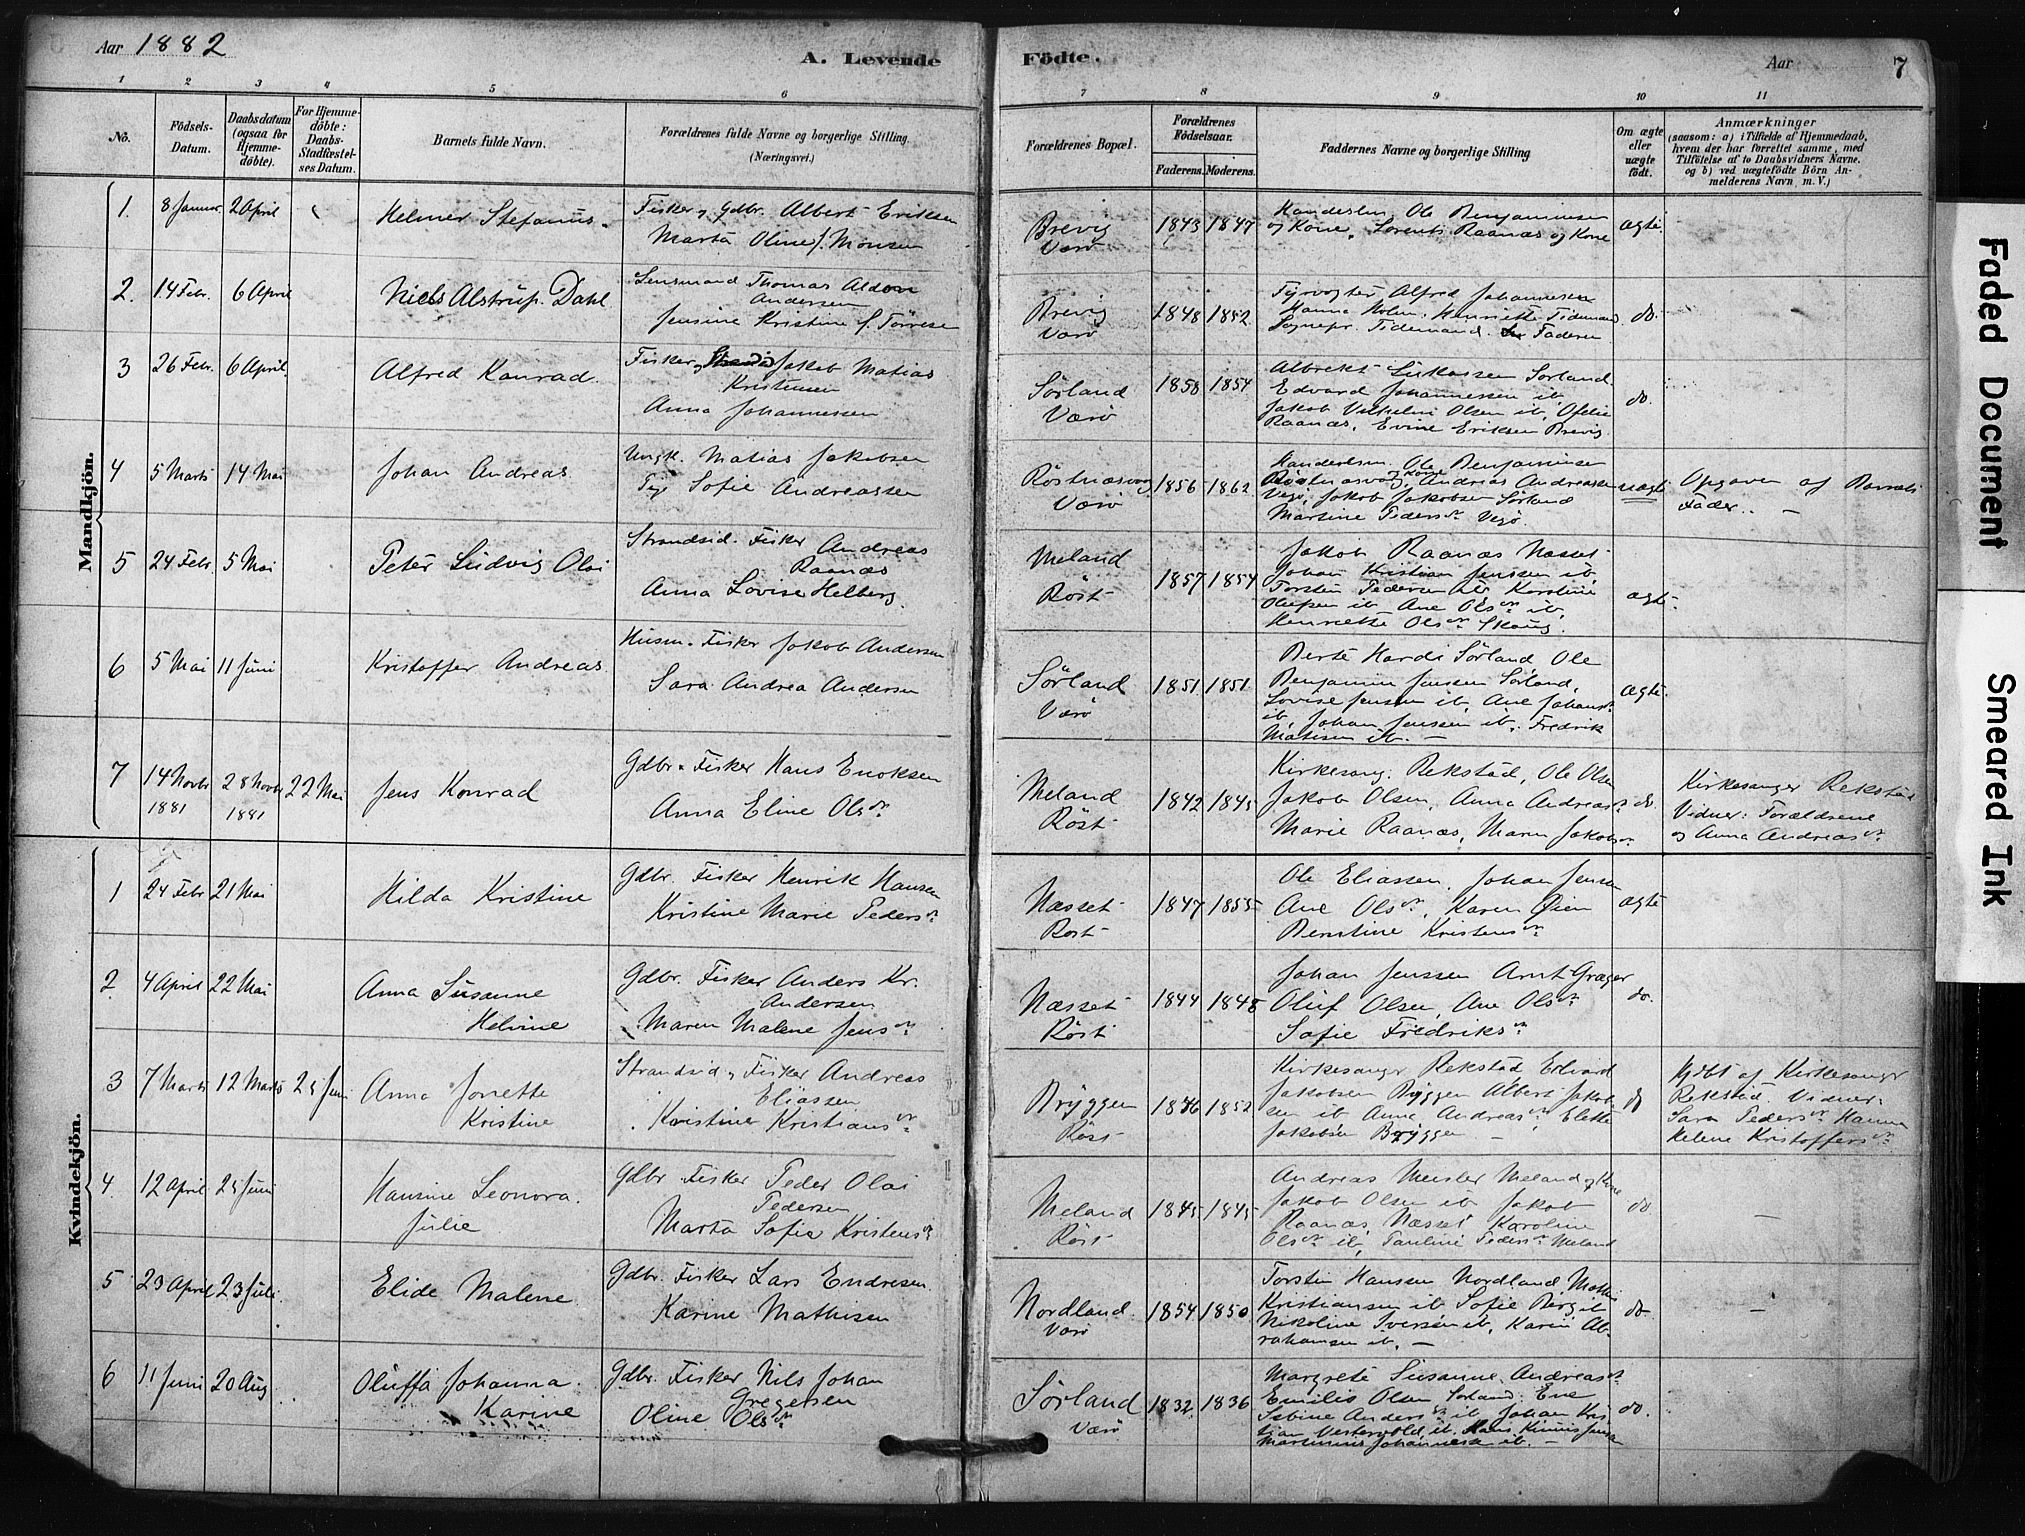 Aar 1882
A. Levende
Födte.
Aar
7
1 2 3 4 5 6 7 8 9 10 11
No.
Födsels-Datum.
Daabsdatum (ogsaa for Hjemme-döbte).
For Hjemme-döbte: Daabs-Stadfæstel-ses Datum.
Barnets fulde Navn.
Forældrenes fulde Navne og borgerlige Stilling (Næringsvei.)
Forældrenes Bopæl.
Forældrenes Födselsaar.
Faderens. Moderens.
Faddernes Navne og borgerlige Stilling
Om ægte eller uægte födt.
Anmærkninger
(saasom: a) i Tilfælde af Hjemmedaab, hvem der har forrettet samme, med Tilföielse af to Daabsvidners Navne, og b) ved uægtefödte Börn An-melderens Navn m. V.)
Mandkjön.
1. 8 Januar 2 April
Helmer Stefanus.
Fisker, Gdbr. Albert Eriksen
Marta Oline f. Monsen
Brevig
Værö
1843 1847
Handelsm. Ole Benjaminsen
og Kone. Lorents Raanæs og Kone
ægte.
2. 14 Febr. 6 April
Niels Alstrup. Dahl
Lensmand Thomas
Andersen
Jensine Kristine f.
Brevig
Værö
1848 1852
Fyrvogter Alfred Johannesen
Hanna Holm. Henriette Tidemand
Sognepr. Tidemand. Faderen
do.
3 26 Febr. 6 April.
Alfred Konrad.
Fisker, Jakob Matias
Kristensen
Anna Johannessen
Sörland
Værö
1858 1854
Albrekt Lukassen Sörland.
Edvard Johannessen ib.
Jakob Vilhelm Olsen ib, Ofelie
Raanæs, Evine Eriksen Brevig.
do.
4 5 Marts 14 Mai
Johan Andreas
Ungk. Matias Jakobsen
Pige Sofie Andreassen
Röstnæsvog
Værö
1856 1862
Handelsm. Ole Benjaminsen
Röstnæsvog, og Kone Andreas Andreassen
Jakob Jakobsen Sörland
Martine Pedersdr
uægte
Opgaven af Barnets
Fader. —
5 24 Febr. 5 Mai
Peter Ludvig Olai
Strandsid. Fisker Andreas
Raanæs
Anna Lovise Helberg.
Meland
Röst
1857 1854
Jakob Raanæs Næsset
Johan Kristian Jenssen ib,
Torsten Pedersen ib Karoline
Olufsen ib Ane Olsdr ib,
Henriette Olsdr
ægte.
6 5 Mai 11 Juni
Kristoffer Andreas
Husm. Fisker Jakob Andersen
Sara Andrea Andersen
Sörland
Værö
1851 1851
Berte Hardi Sörland Ole
Benjamin Jenssen Sörland,
Lovise Jensen ib, Ane Johansdr
ib, Johan Jenssen ib. Fredrik
Matisen ib. —
ægte.
7 14 Novbr 1881 28 Novbr 1881 22 Mai
Jens Konrad
Gdbr. Fisker Hans Enoksen
Anna Eline Olsdr
Meland
Röst
1842 1845
Kirkesang. Rekstad, Ole Olsen
Jakob Olsen, Anna Andreasdr
Marie Raanæs, Maren Jakobsdr
do.
Kirkesanger Rekstad
Vidner: Forældrene
og Anna Andreasdr
Kvindekjön.
1 24 Febr 21 Mai
Hilda Kristine
Gdbr. Fisker Henrik Hansen
Kristine Marie Pedersdr
Næsset
Röst
1847 1855
Ole Eliassen. Johan Jensen
Ane Olsdr, Karen Öien
Berntine Kristensdr
ægte
2. 4 April 22 Mai
Anna Susanne
Helvine
Gdbr. Fisker Anders Kr.
Andersen
Maren Malene Jensdr
Næsset
Röst
1844 1848
Johan Jenssen Arnt Græger
Oluf Olsen, Ane Olsdr
Sofie Fredriksdr
do.
3 7 Marts 12 Marts 25 Juni
Anna Jonette
Kristine
Strandsid, Fisker Andreas
Eliassen
Kristine Kristiansdr
Bryggen
Röst
1846 1852
Kirkesanger Rekstad Edvard
Jakobsen Bryggen Albert Jakob
sen ib Anna Andreasdr, Elette
Jakobsen Bryggen —
do
Hjdbt af Kirkesanger
Rekstad. Vidner:
Sara Pedersdr Hanna
Helene Kristoffersdr
4. 12 April 25 Juni
Hansine Leonora.
Julie
Gdbr. Fisker Peder Olai
Pedersen
Marta Sofie Kristensdr
Meland
Röst
1845 1845
Andreas Meisler Meland og Kone
Jakob Olsen ib Jakob
Raanæs Næsset Karoline
Olsdr ib, Pauline Pedersdr Meland
do
—
5 23 April 23 Juli.
Elide Malene
Gdbr. Fisker Lars Endresen.
Karine Mathisen
Nordland.
Værö
1854 1850
Torsten Hanssen Nordland,
Kristiansen ib Sofie Berg ib
Nikoline Iversen ib, Karen Ab-
rahamsen ib. —
do.
—
6 11 Juni 20 Aug
Oluffa Johanna.
Karine
Gdbr. Fisker Nils Johan
Gregersen
Oline Olsdr
Sörland
Værö
1832 1836
Margrete Susanne Andreasdr
Emilie Olsen Sörland. Ene
Sabine Andersdr ib, Johan Kris
tian Vestervold ib. Hans
Martinius Johannesen ib. —
do.
Faded Document
Smeared Ink